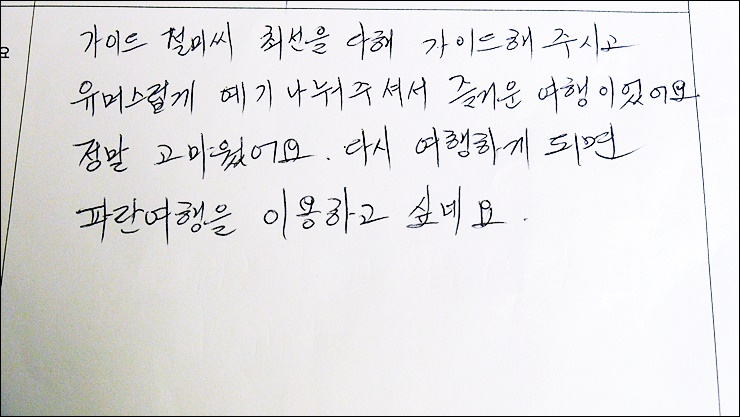 가이드 철미씨 최선을 다해 가이드해 주시고
유머스럽게 얘기나눠주셔서 즐거운 여행이었어요
정말 고마웠어요. 다시 여행하게 되면
파란여행을 이용하고 싶네요.